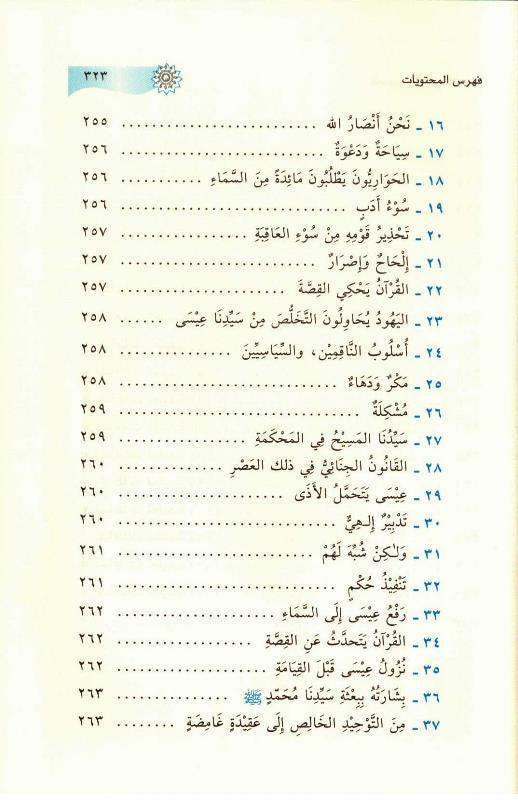 فهرس المحتويات ٣٢٣
١٦ ـ نَحْنُ أَنْصَارُ الله .......................... ٢٥٥
١٧ ـ سِيَاحَةٌ وَدَعْوَةٌ ........................... ٢٥٦
١٨ ـ الحَوَارِيُّونَ يَطْلُبُونَ مَائِدَةً مِنَ السَّمَاءِ ........... ٢٥٦
١٩ ـ سُوْءُ أَدَبٍ .............................. ٢٥٦
٢٠ ـ تَحْذِيرُ قَوْمِهِ مِنْ سُوْءِ العَاقِبَةِ ................ ٢٥٧
٢١ ـ إِلْحَاحٌ وَإِصْرَارٌ .......................... ٢٥٧
٢٢ ـ القُرْآنُ يَحْكِي القِصَّةَ ...................... ٢٥٧
٢٣ ـ اليَهُودُ يُحَاوِلُونَ التَّخَلُّصَ مِنْ سَيِّدِنَا عِيْسَى ...... ٢٥٨
٢٤ ـ أُسْلُوبُ النَّاقِمِيْنَ، والسِّيَاسِيِّينَ ............... ٢٥٨
٢٥ ـ مَكْرٌ وَدَهَاءٌ ............................. ٢٥٨
٢٦ ـ مُشْكِلَةٌ ................................ ٢٥٩
٢٧ ـ سَيِّدُنَا المَسِيْحُ فِي المَحْكَمَةِ ................. ٢٥٩
٢٨ ـ القَانُونُ الجِنَائِيُّ فِي ذلك العَصْرِ .............. ٢٦٠
٢٩ ـ عِيْسَى يَتَحَمَّلُ الأَذَى ...................... ٢٦٠
٣٠ ـ تَدْبِيْرٌ إِلـهِيٌّ ............................. ٢٦٠
٣١ ـ وَلـٰكِنْ شُبِّهَ لَهُمْ .......................... ٢٦١
٣٢ ـ تَنْفِيْذُ حُكْمٍ ............................. ٢٦١
٣٣ ـ رَفْعُ عِيْسَى إِلَى السَّمَاءِ .................... ٢٦٢
٣٤ ـ القُرْآنُ يَتَحدَّثُ عَنِ القِصَّةِ ................. ٢٦٢
٣٥ ـ نُزُولُ عِيْسَى قَبْلَ القِيَامَةِ .................. ٢٦٢
٣٦ ـ بِشَارَتُهُ بِبِعْثَةِ سَيِّدِنَا مُحَمَّدٍ ﷺ ............. ٢٦٣
٣٧ ـ مِنَ التَّوْحِيْدِ الخَالِصِ إِلَى عَقِيْدَةٍ غَامِضَةٍ ........ ٢٦٣